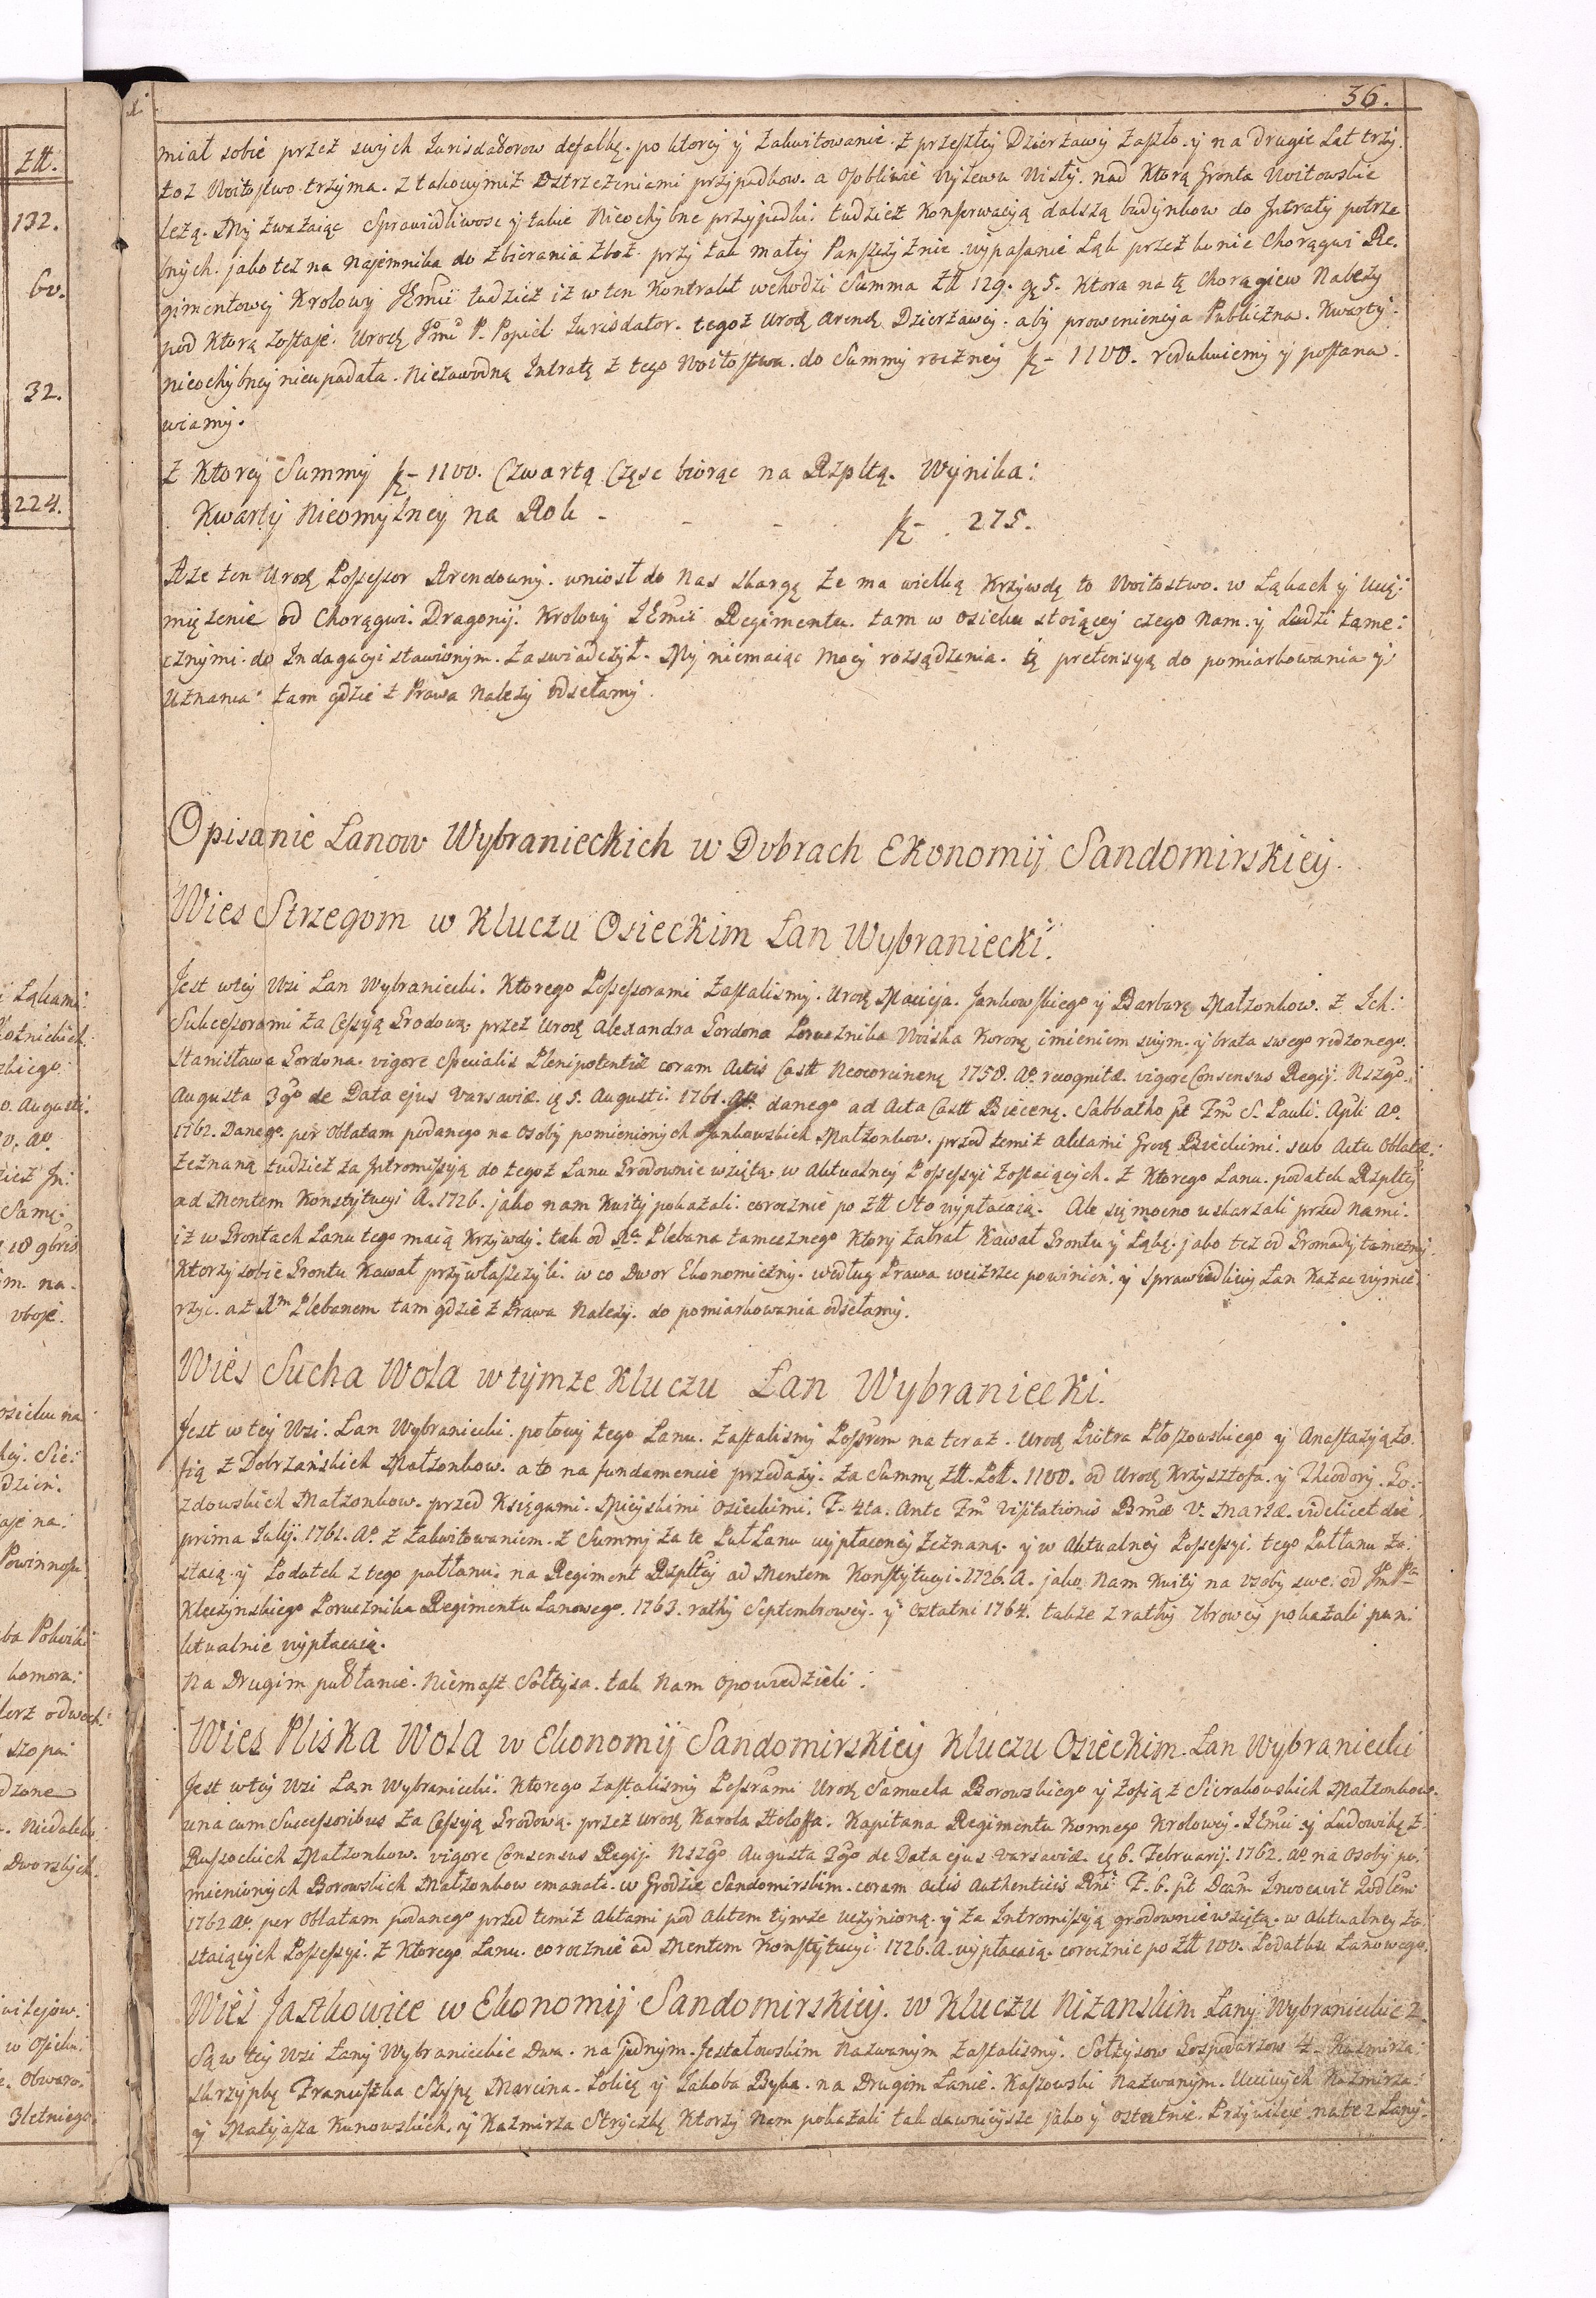 36.
miał sobie przez swych Jurisdatorow defalkę. po ktorey y zakwitowanie. z przeszłey Dzierżawy zaszło. y na drugie Lat trzy.
toż Woitostwo trzyma. z takowymiż Ostrzeżeniami przypadkow. a osobliwie Wylewu Wisły. nad Ktorą Gronta Woitowskie
leżą. My zważaiąc Sprawiedliwosc y takie Nieochybne przypadki. tudziesz Konserwacyą dalszą budynkow do Jntraty potrze
bnych. jako też na Najemnika do zbierania zboż. przy tak małey Panszczyznie. wypasanie Łąk przez konie Chorągwi Re.
gimentowey Krolowy JEmci tudziesz iż w ten Kontrakt wchodzi Summa Złł 129. g. 5. Ktora na tę Chorągiew Należy
pod Ktorą zostaje. Urodz. Jmć P. Popiel Jurisdator. tegoż Urodz. Arendz. Dzierżawcy. aby proweniencya Publiczna. Kwarty.
nieochybney nieupadała. Niezawodną Intratę z tego Woitostwa. do Summy roczney fz- 1100. redukuiemy y postana.
wiamy.
Z Ktorey Summy fz- 1100. Czwartą Częsc biorąc na Rzpltą. Wynika:
Kwarty Nieomylney na Rok - - - fz- 275.
Aże ten Urodz. Possessor Arendowny. wniosł do Nas skargę że ma wielką Krzywdę to Woitostwo. w Łąkach y Ucię:
miężenie od Chorągwi. Dragonij. Krolowy JEmci Regimentu. tam w Osieku stoiącey czego Nam. y Ludzi tame:
cznymi. do Indagacyi stawionym. zaswiadczył. My niemaiąc Mocy rozsądzenia. tę pretensyą do pomiarkowania y
Uznania. tam gdzie z Prawa Należy odsełamy.
Opisanie Łanow Wybranieckich w Dobrach Ekonomij Sandomirskiey.
Wies Strzegom w Kluczu Osieckim Łan Wybraniecki.
Jest wtey Wsi Łan Wybraniecki. Ktorego Possessorami zastalismy. Urodz. Macieja. Jankowskiego y Barbarę Małżonkow. z Ich:
Sukcessorami za Cessyą Grodową. przez Urodz. Alexandra Gordona Porucznika Woiska Koronę imieniem swym. y brata swego rodzonego.
Stanisława Gordona. vigore Specialis Plenipotentiæ coram Actis Castr Neocorcinens 1758. Aº. recognitæ. vigore Consensus Regij. Nszgo.
Augusta 3go de Data ejus Varsaviæ. 5. Augusti. 1761. Aº. danego ad Acta Castr Biecens. Sabbatho pt Fm S. Pauli. Apli Aº.
1762. Danego. per Oblatam podanego na Osoby pomienionych Jankowskich Małżonkow. przed temiż aktami Grodz Bieckimi. sub Actu Oblatæ:
zeznaną tudziesz za Jntromissyą do tegoż Łanu Grodownie wziętą. w Aktualney Possessyi zostaiących. z Ktorego Łanu. podatek Rzpltey
ad Mentem Konstytucyi A. 1726. jako nam Kwity pokazali. corocznie po Złł Sto wypłacaią. Ale się mocno uskarżali przed nami.
iż w Grontach Łanu tego maią Krzywdy. tak od Xa Plebana tamecznego Ktory zabrał Kawał Grontu y Łąkę. jako też od Gromady tameczny.
Ktorzy sobie Grontu Kawał przywłaszczyli. w co Dwor Ekonomiczny. według Prawa weirzec powinien. y sprawiedliwy Łan Kazac wymie
rzyc. a z Xm Plebanem tam gdzie z Prawa Należy. do pomiarkowania odsełamy.
Wies Sucha Wola w tymze Kluczu Łan Wybraniecki.
Jest w tey Wsi. Łan Wybraniecki. połowy tego Łanu. zastalismy Possrem na teraz. Urodz. Piotra Płoszowskiego y Anastazyą Zo.
fią z Dobrzańskich Małżonkow. a to na fundamencie przedaży. za Summę Złł. Poll. 1100. od Urodz Krzysztofa. y Theodory. Go.
zdowskich Małżonkow. przed Księgami. Mieyskimi Osieckimi. F. 4ta. Ante Fm Visitationis Bmæ V. Mariæ. videlicet die
prima Julij. 1761. Aº. z zakwitowaniem. z Summy za te Puł Łanu wypłaconey zeznaną. y w Aktualney Possessyi. tego Pułłanu zo.
staią. y Podatek z tego pułłanu. na Regiment Rzpltey ad Mentem Konstytucyi. 1726. A. jako Nam Kwity na Osoby swe. od Jm Pa
Kleczynskiego Porucznika Regimentu Łanowego. 1763. rathy Septembrowey. y Ostatni 1764. także z rathy 7browey pokazali pun:
ktualnie wypłacaią.
Na Drugim pułłanie. Niemasz Sołtysa. tak Nam Opowiedzieli.
Wies Pliska Wola w Ekonomij Sandomirskiey Kluczu Osieckim. Łan Wybraniecki
Jest wtey Wsi Łan Wybraniecki. Ktorego zastalismy Possrami Urodz Samuela Borowskiego y Zofią z Sierakowskich Małżonkow.
una cum Successoribus za Cessyą Grodową. przez Urodz Karola Heloffa. Kapitana Regimentu Konnego Krolowey. JEmci y Ludowikę z
Russockich Małżonkow. vigore Consensus Regij. Nszgo Augusta 3go de Data ejus Varsaviæ. 6. Februarij. 1762. Aº na Osoby po.
mienionych Borowskich Małżonkow emanati. w Grodzie Sandomirskim. coram actis authenticis F. 6. pt Dcam Invocavit
1762 Aº. per Oblatam podanego przed temiż Aktami pod Aktem tymże uczynioną. y za Intromissyą grodownie wziętą. w Aktualney zo.
staiących Possessyi. z Ktorego Łanu. corocznie ad Mentem Konstytucyi 1726. A. wypłacaią. corocznie po Złł 100. Podatku Łanowego.
Wies Jaszkowice w Ekonomij Sandomirskiey. w Kluczu Niżanskim Łany Wybranieckie 2.
Są w tey Wsi Łany Wybranieckie Dwa. na jednym. Jestałowskim Nazwanym zastalismy. Sołtysow Gospodarzow 4. Kazmirza:
Skrzypkę Franciszka Szypę Marcina. Lolicę y Jakoba Byka. na Drugim Łanie. Kaszowski Nazwanym. Uczciwych Kazmirza:
y Matyasza Kunowskich. y Kazmirza Stryczkę Ktorzy Nam pokazali tak dawnieysze jako y ostatnie. Przywileje na te 2 Łany.
Złł.
132.
60.
32.
224.